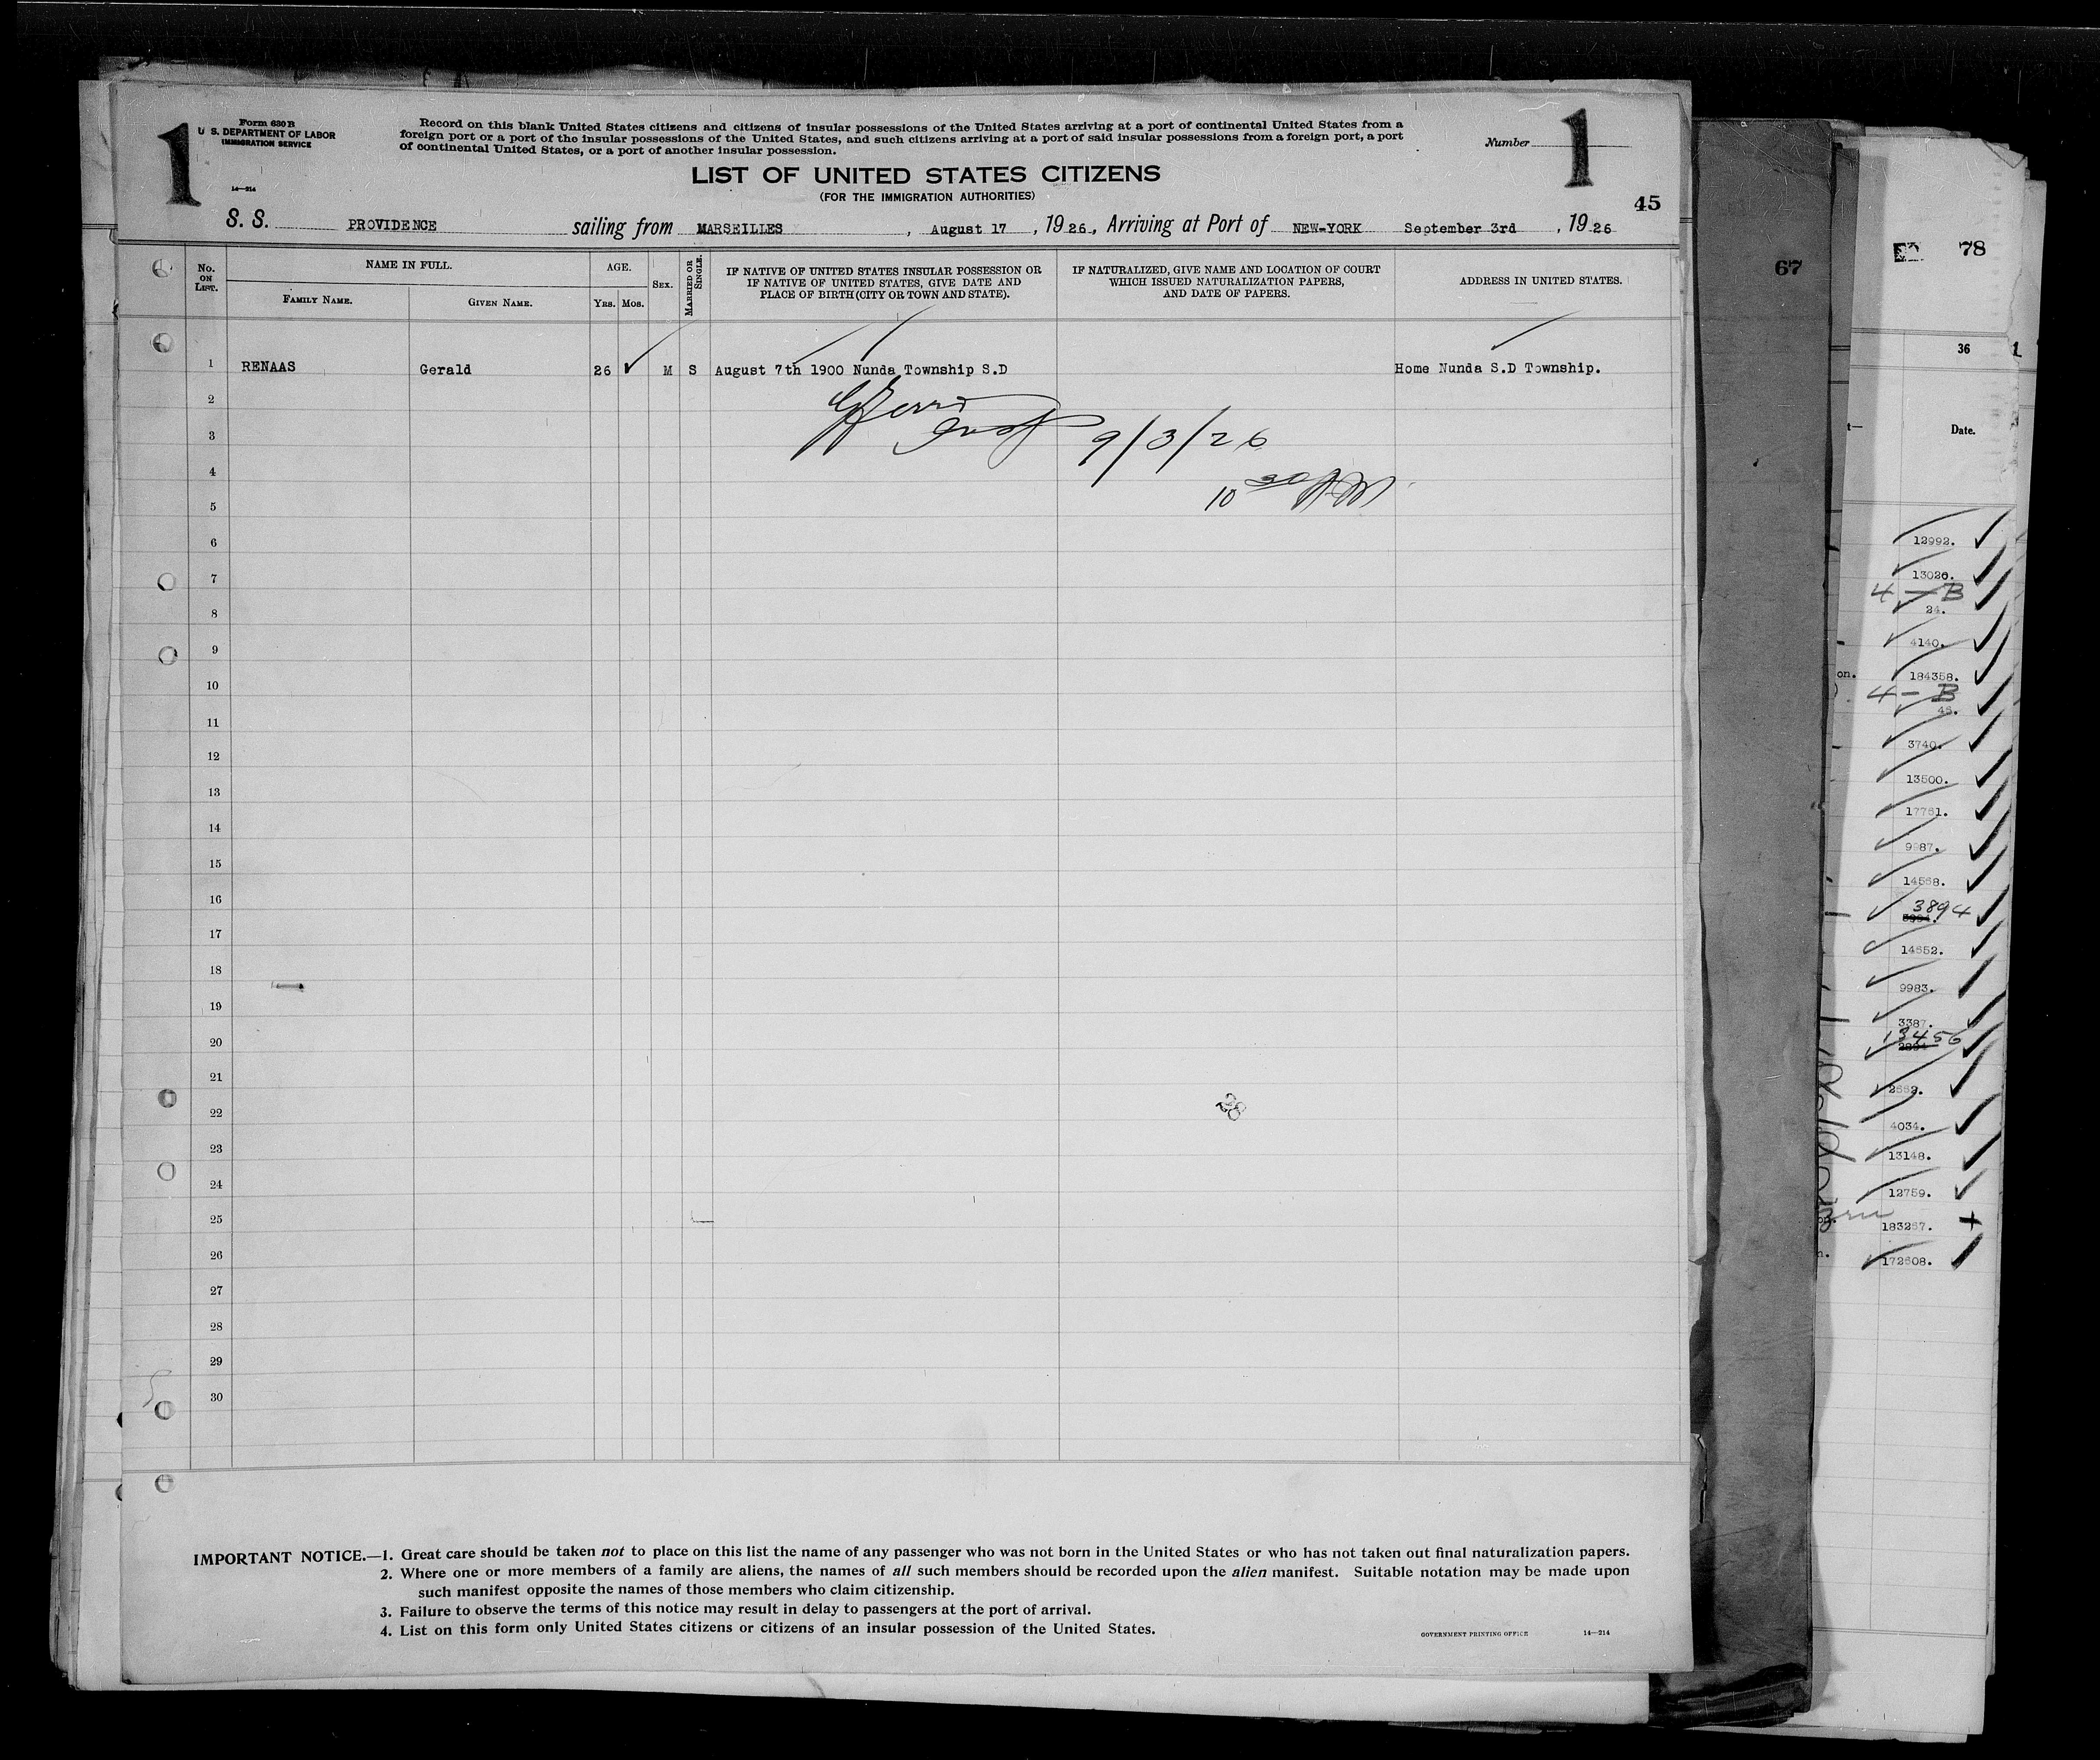 1
Form 630 B
U S. DEPARTMENT OF LABOR
IMMIGRATION SERVICE
14—214
Record on this blank United States citizens and citizens of insular possessions of the United States arriving at a port of continental United States from a
foreign port or a port of the insular possessions of the United States, and such citizens arriving at a port of said insular possessions from a foreign port, a port
of continental United States, or a port of another insular possession.
Number
1
LIST OF UNITED STATES CITIZENS
(FOR THE IMMIGRATION AUTHORITIES)
45
S. S. PROVIDENCE sailing from MARSEILLES, August 17, 1926, Arriving at Port of NEW-YORK September 3rd, 1926
No. ON LIST.
NAME IN FULL.
FAMILY NAME. GIVEN NAME.
AGE.
YRS. MOS.
SEX.
MARRIED OR SINGLE.
IF NATIVE OF UNITED STATES INSULAR POSSESSION OR
IF NATIVE OF UNITED STATES, GIVE DATE AND
PLACE OF BIRTH (CITY OR TOWN AND STATE).
IF NATURALIZED, GIVE NAME AND LOCATION OF COURT
WHICH ISSUED NATURALIZATION PAPERS,
AND DATE OF PAPERS.
ADDRESS IN UNITED STATES.
1 RENAAS Gerald 26 M S August 7th 1900 Nunda Township S.D Home Nunda S.D Township.
2
3 9/3/26
4
10 30 AM
5
6
7
8
9
10
11
12
13
14
15
16
17
18
19
20
21
22
28
23
24
25
26
27
28
29
30
IMPORTANT NOTICE.—1. Great care should be taken not to place on this list the name of any passenger who was not born in the United States or who has not taken out final naturalization papers.
2. Where one or more members of a family are aliens, the names of all such members should be recorded upon the alien manifest. Suitable notation may be made upon
such manifest opposite the names of those members who claim citizenship.
3. Failure to observe the terms of this notice may result in delay to passengers at the port of arrival.
4. List on this form only United States citizens or citizens of an insular possession of the United States.
GOVERNMENT PRINTING OFFICE 14—214
67
78
36
1
Date.
12992.
13026.
4 — B
24.
4140.
on.
184358.
4 - B
3740.
13500.
17761.
9987.
14568.
3894
14652.
9983.
3387.
13456
4034.
13148.
12759.
183267.
172608.